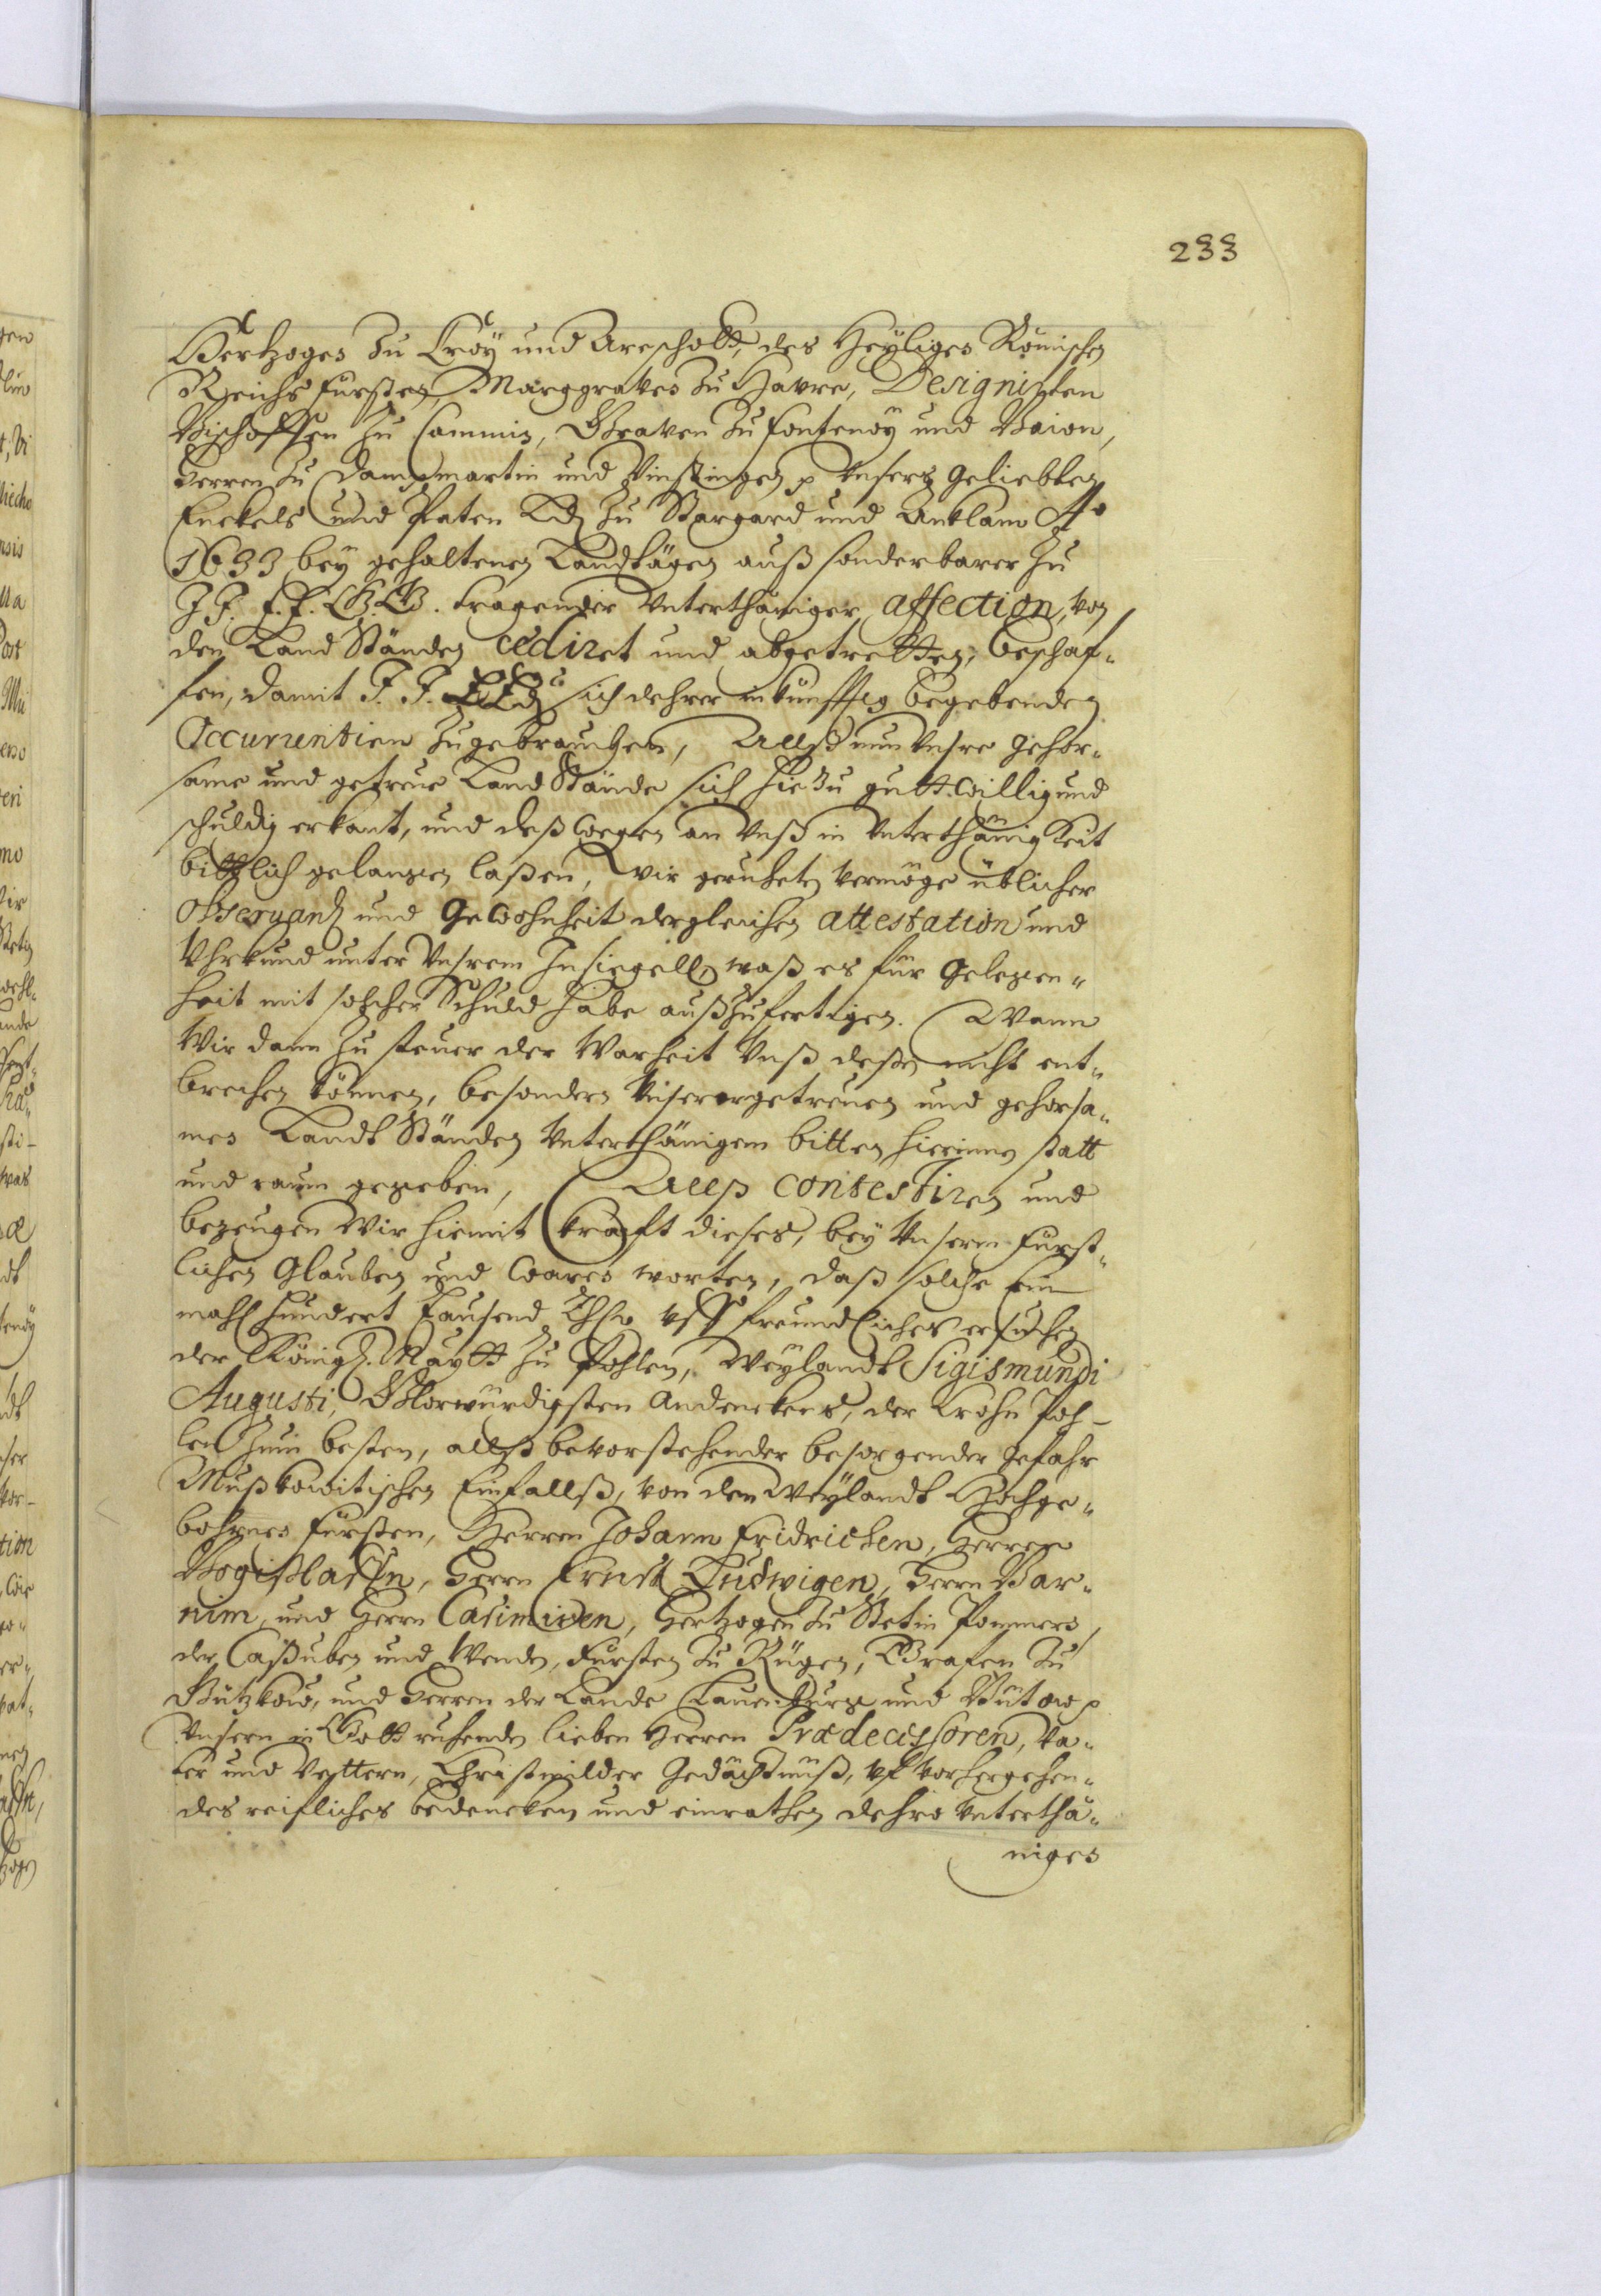 233
Hertzoges zu Croÿ und Arschott, des Heÿliges Römischen
Reichs fursten, Marggraves zu Havre, Designirten
Bischoffen zu Cammin, Graven zu Fontenoÿ und Baion,
Herren zu Dampmartin und Vinstingen p Unsers geliebten
Enckels und Paten Ld zu Stargard und Anklam Ao
1633 beÿ gehaltenen Landtägen auß sonderbarer zu
J. F. F. G. G. tragender Unterthäniger affection, von
den Land Ständen cediret und abgetretten, beschaf-
fen, damit sich dehrer inkünfftig begebenden
Occurrentien zugebrauchen, Allß nun Unsre gehor-
same und getreue Land Stände sich hiezu gutt willig und
schuldig erkant, und deßwegen an Unß in Unterthänigkeit
bittlich gelangen laßen, wir geruheten vermöge üblicher
Observantz und Gewohnheit dergleichen attestation und
Uhrkund unter Unsrem Insiegell, waß es für gelegen-
heit mit solcher Schuld habe außzufertigen. Wann
Wir dann zu steuer der Warheit Unß deßen nicht ent-
brechen können, besonders Unserer getreuen und gehorsa-
mes Landt Ständen Unterthänigem bitten hierinne statt
und raum gegeben, Allß contestiren und
bezeugen Wir hiemit krafft dieses, beÿ Unserm Furst-
lichen Glauben und wares worten, daß solche Ein
mahl hundert Tausend Thlr. uff freundliches ersuchen
der Königl. Maytt zu Pohlen, Weÿlandt Sigismundi
Augusti, Glorwürdigsten Andenckens, der Krohn Poh-
len zum besten, allß bevorstehender besorgender gefahr
Mußkowitischen Einfallß, von den Weÿlandt Hochge-
bohrnes Fürsten, Herren Johann Fridrichen, Herren
Bogißlaffn, Herrn Ernst Ludwigen, Herrn Bar-
nim, und Herrn Casimiren, Hertzogen zu Stetin Pommern,
der Caßuben und Wenden, Fursten zu Rügen, Grafen zu
Gützkow, und Herren der Lande Lauenburg und Bütow p
Unsern in Gott ruhenden lieben Herren Prædecessoren, Va-
ter und Vettern, Christmilder Gedächtnüß, uf vorhergehen-
des reifliches bedencken und einrathen dehro Unterthä-
niges